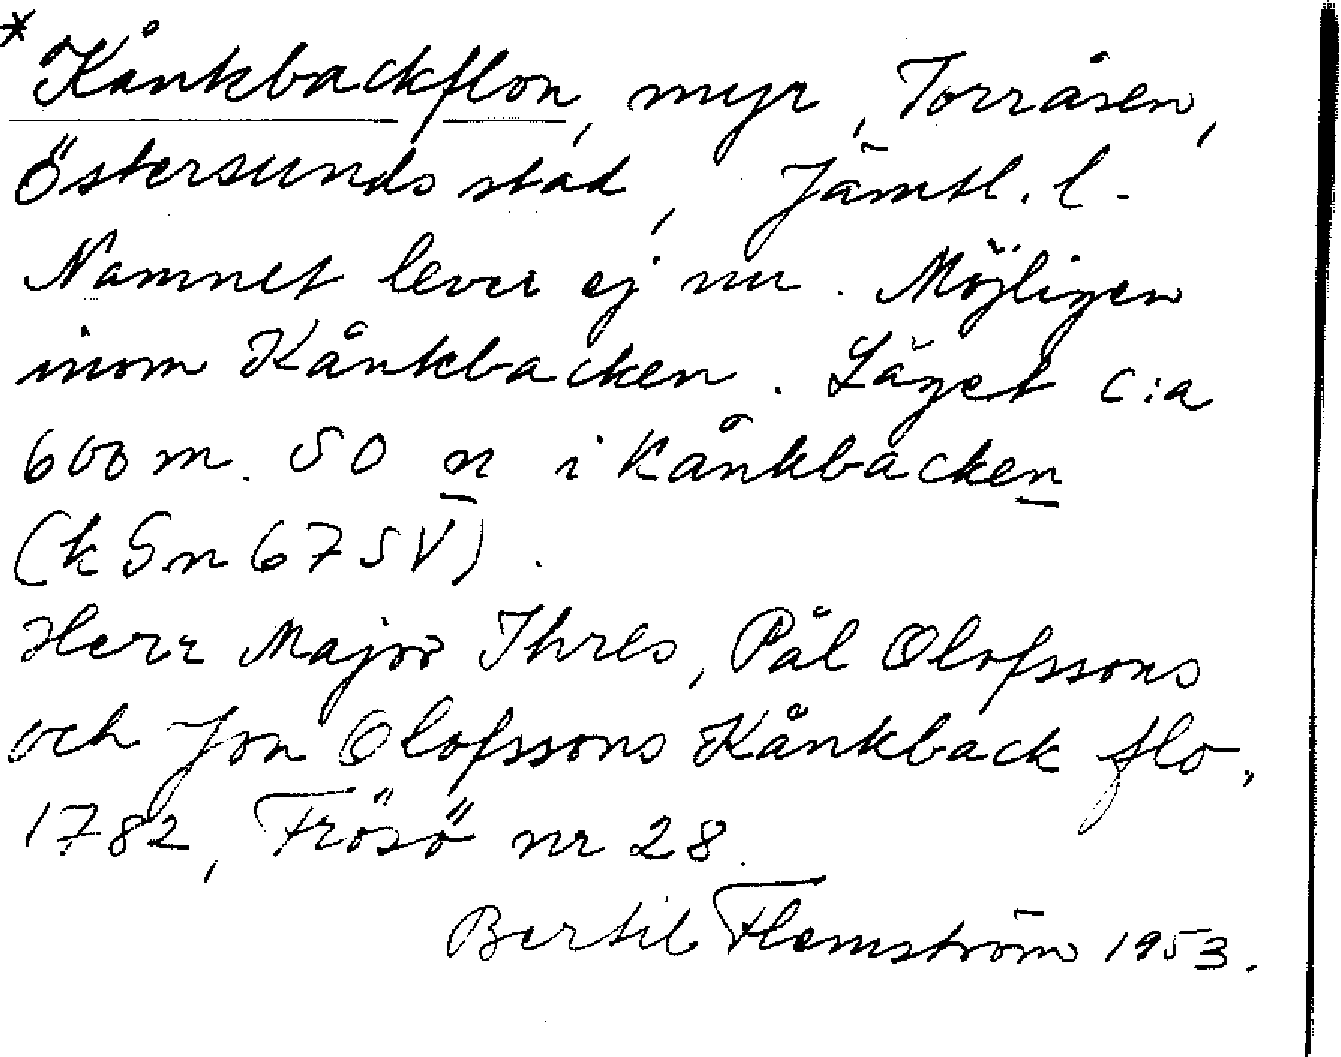 * Kånkbackflon, myr, Torråsen,
Östersunds stad, Jämtl. l.
Namnet lever ej nu. Möjligen
inom Kånkbacken. Läget c:a
600 m. SO n i Kånkbacken
(k Sn 67 SV).
Herr Major Ihres, Pål Olofssons
och Jon Olofssons Kånkback flo,
1782, Frösö nr 28.
Bertil Flemström 1953.